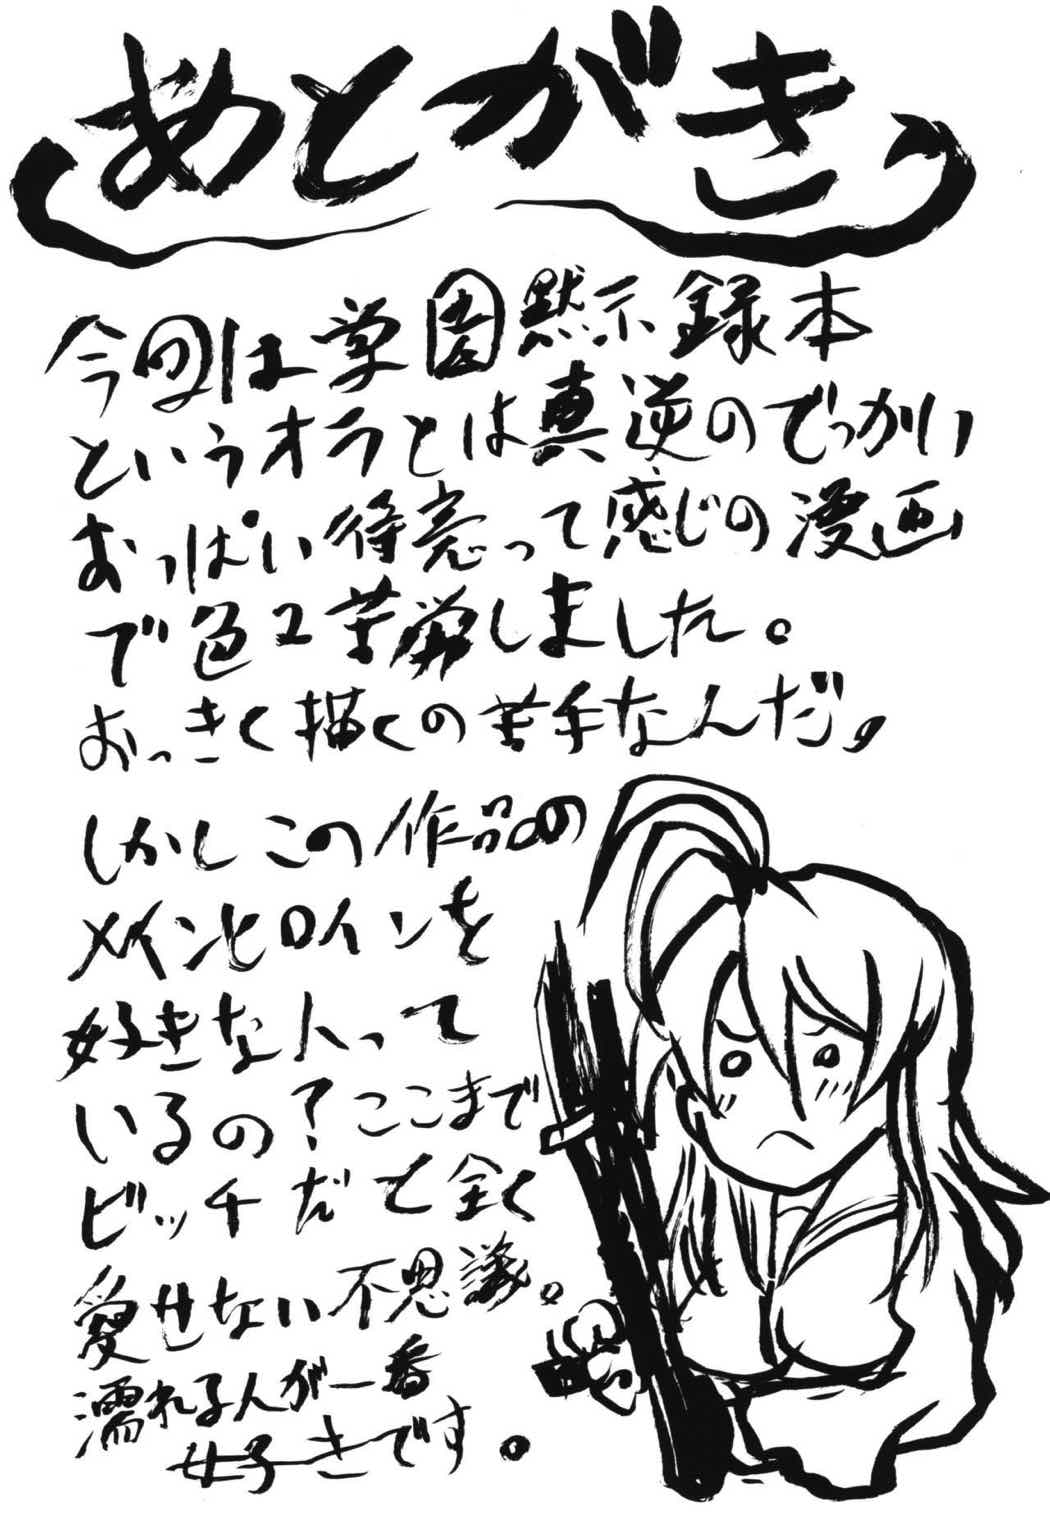 あとがき
今回は学園黙示録本
というオラとは真逆のでっかい
おっぱい待売って感じの漫画
で色々苦労しました。
おっきく描くの苦手なんだ。
しかしこの作品の
メインヒロインを
好きな人って
いるの？ここまで
ビッチだと全く
愛せない不思議。
濡れる人が一番
好きです。